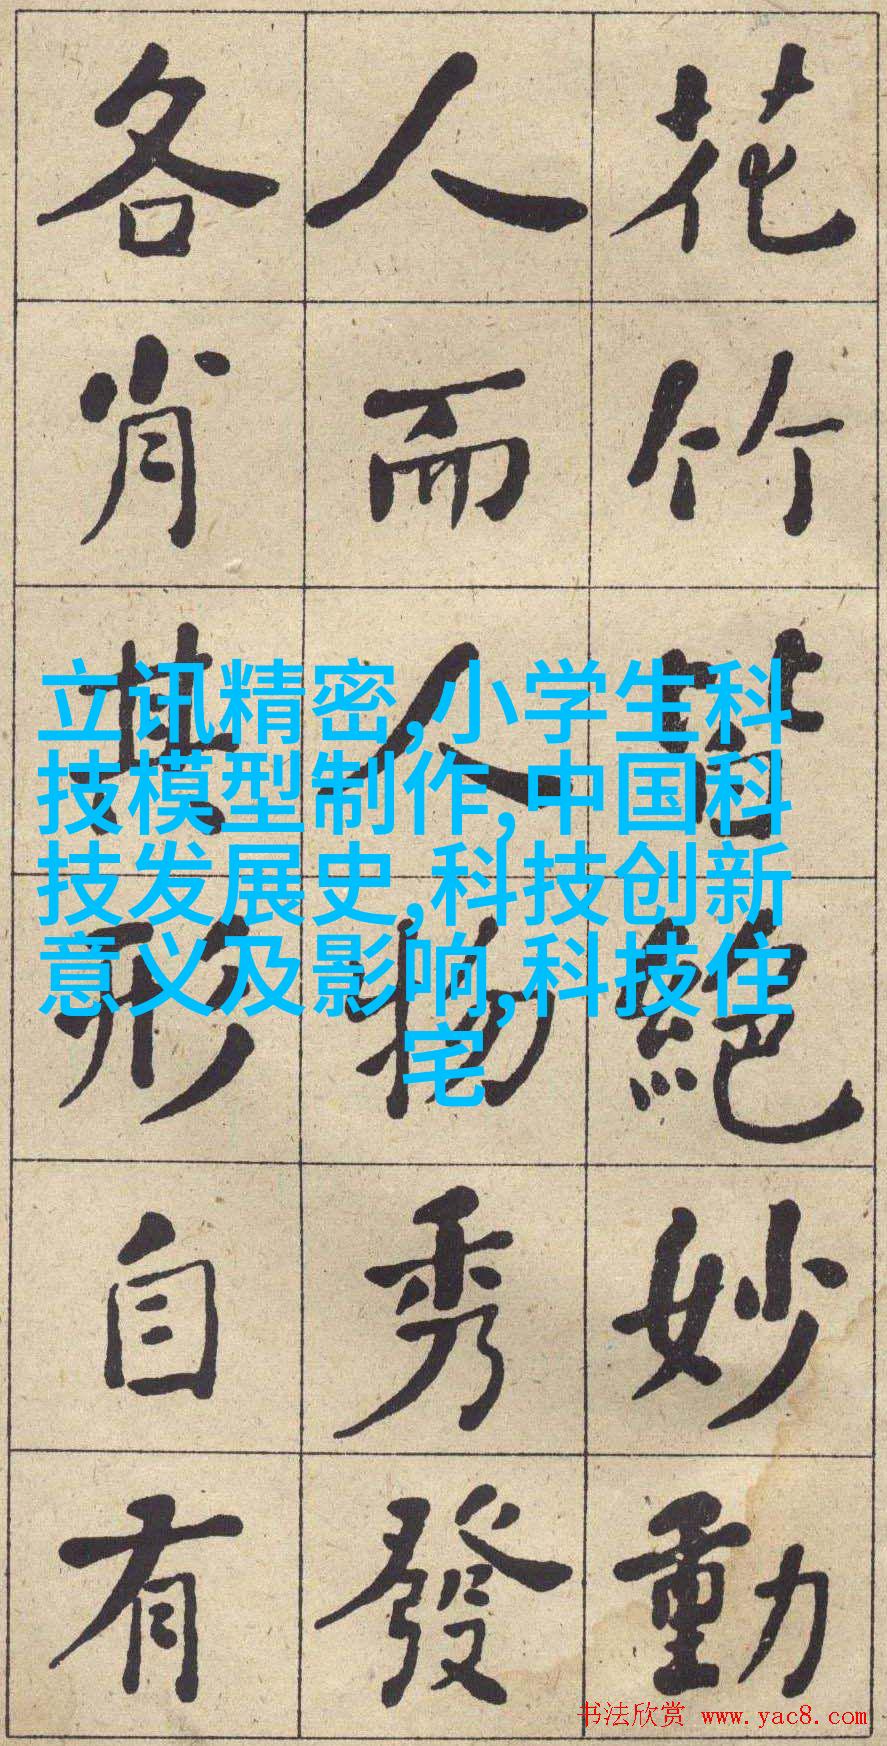 花竹皆絕妙動
人而人物秀發
各肖其形自有
立讯精密,小学生科
技模型制作,中国科
技发展史,科技创新
意义及影响,科技住
宅
书法欣赏 www.yac8.com